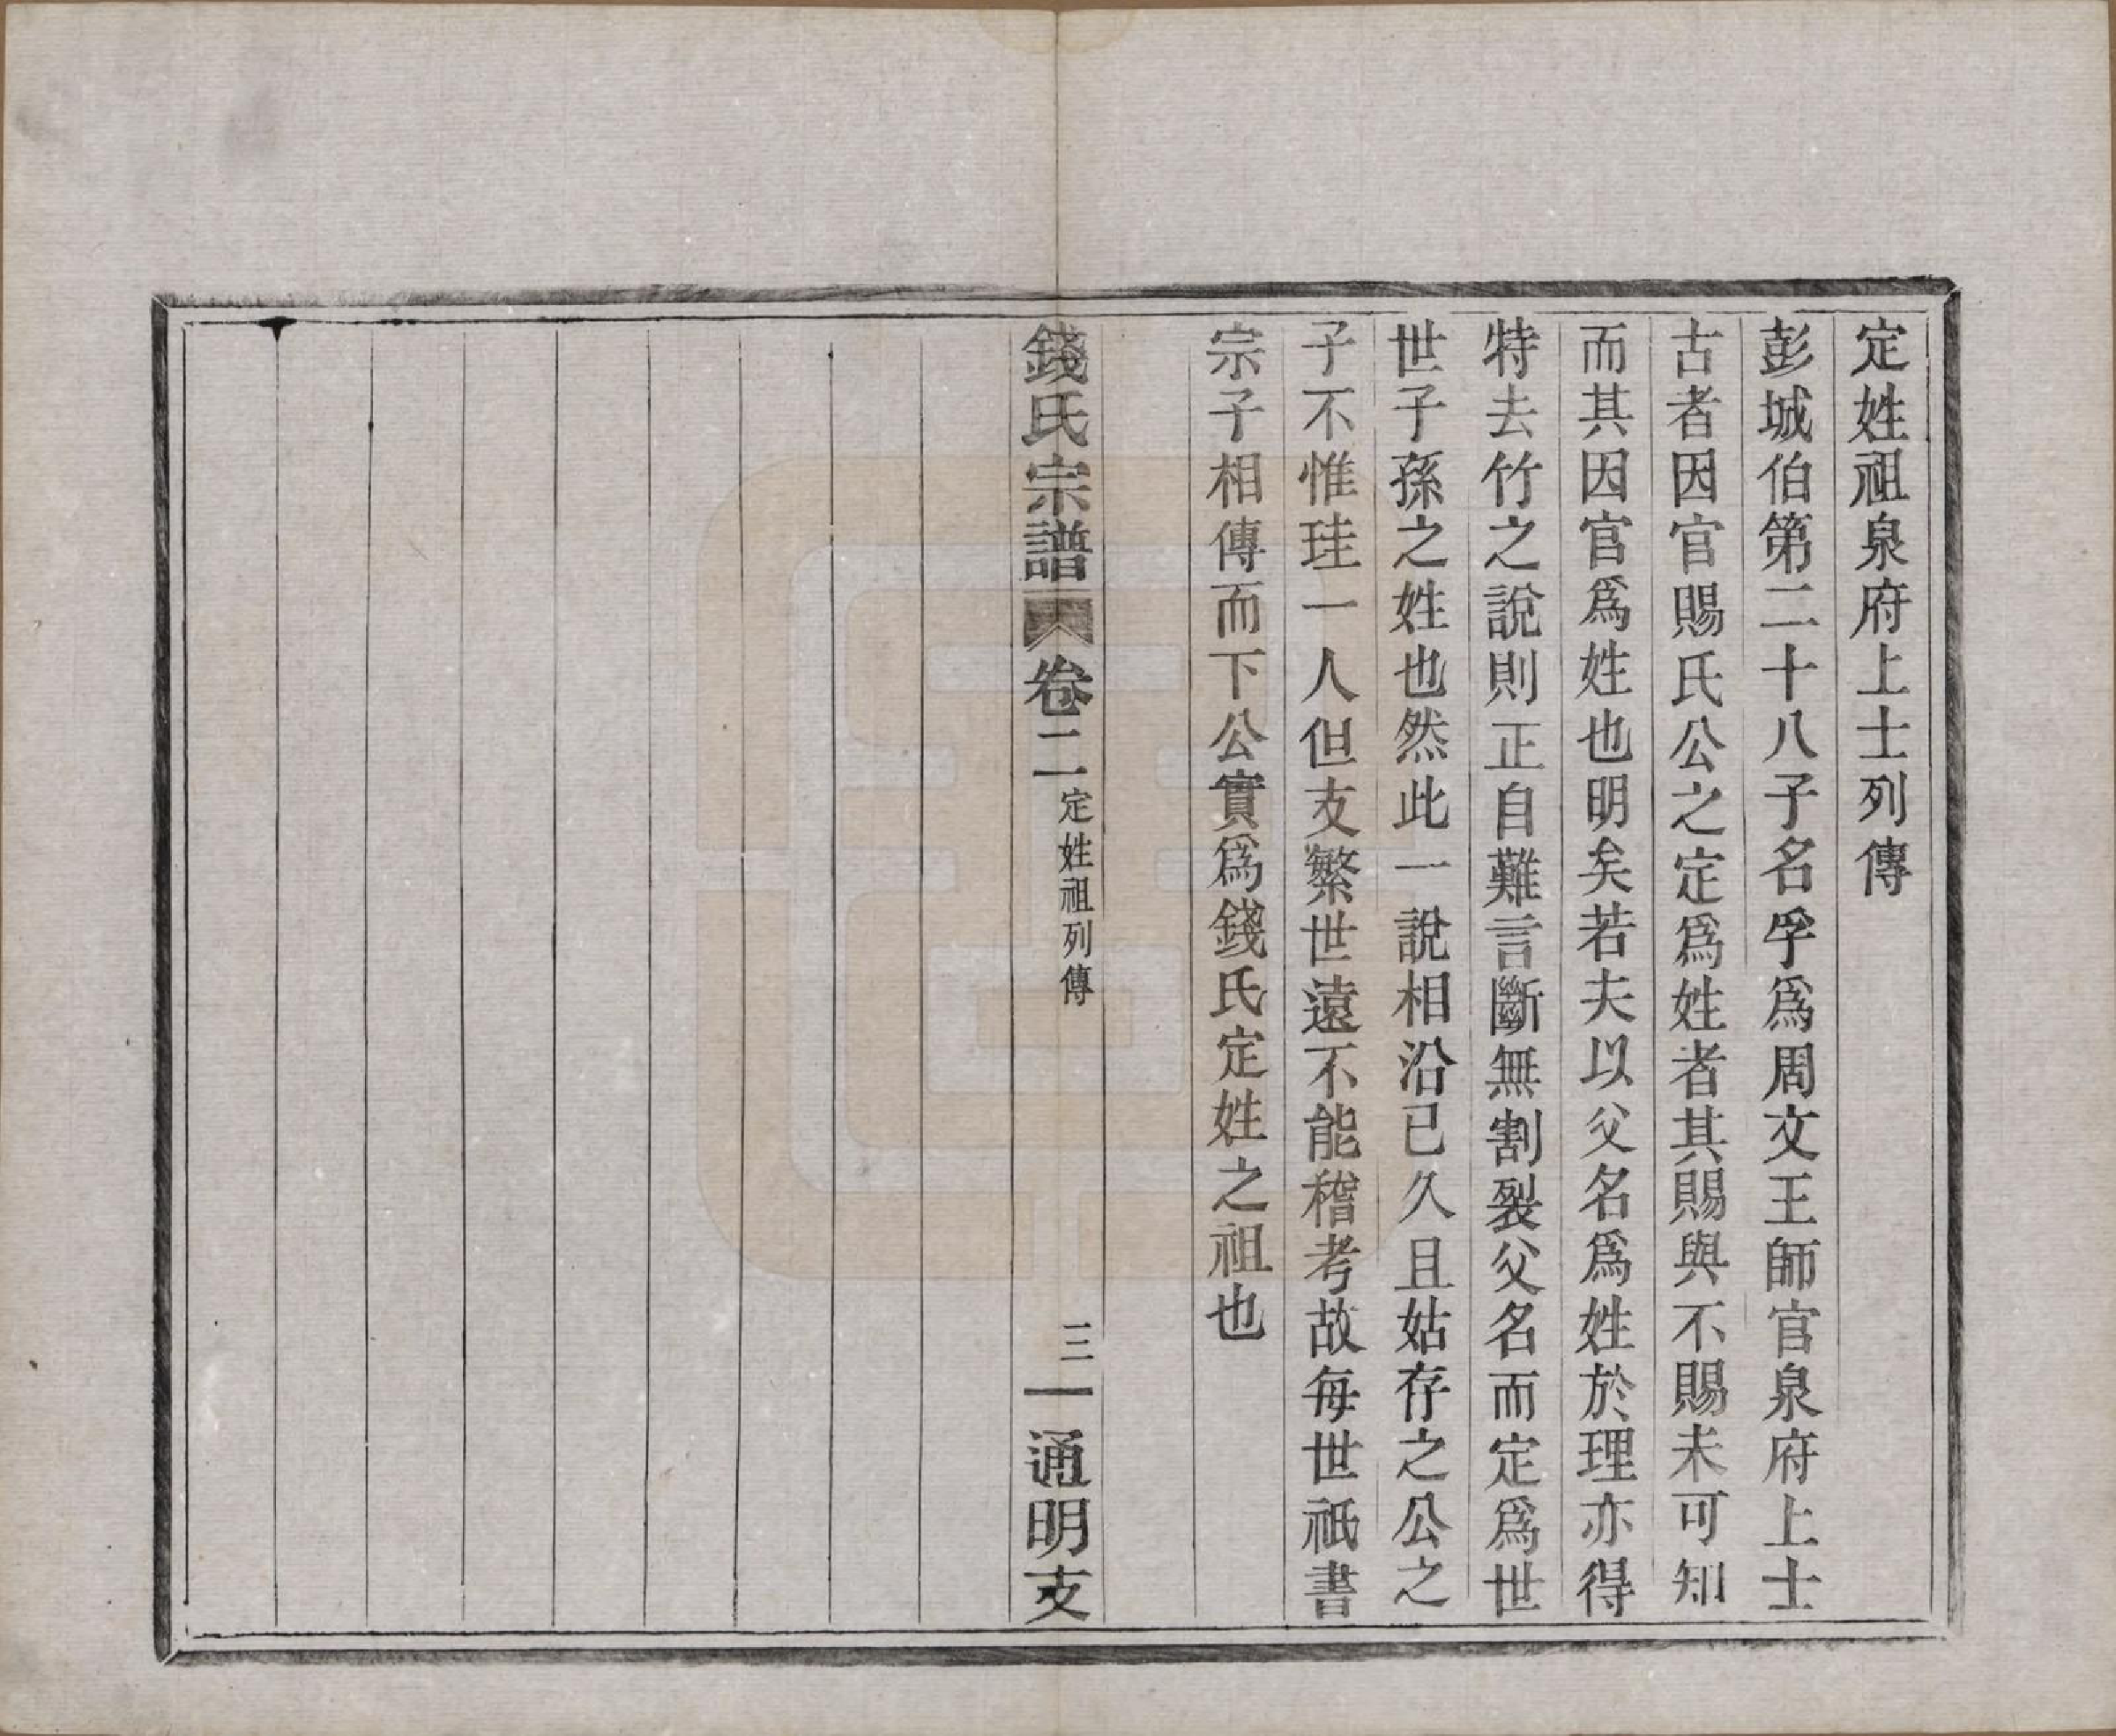 定姓祖泉府上士列傳
彭城伯第二十八子名孚爲周文王師官泉府上士
古者因官賜氏公之定爲姓者其賜與不賜未可知
而其因官爲姓也明矣若夫以父名爲姓於理亦得
特去竹之說則正自難言斷無割裂父名而定爲世
世子孫之姓也然此一說相沿已久且姑存之公之
子不惟珪一人但支繁世遠不能稽考故每世祇書
宗子相傳而下公實爲錢氏定姓之祖也
錢氏宗譜 卷二 定姓祖列傳 三 通明支